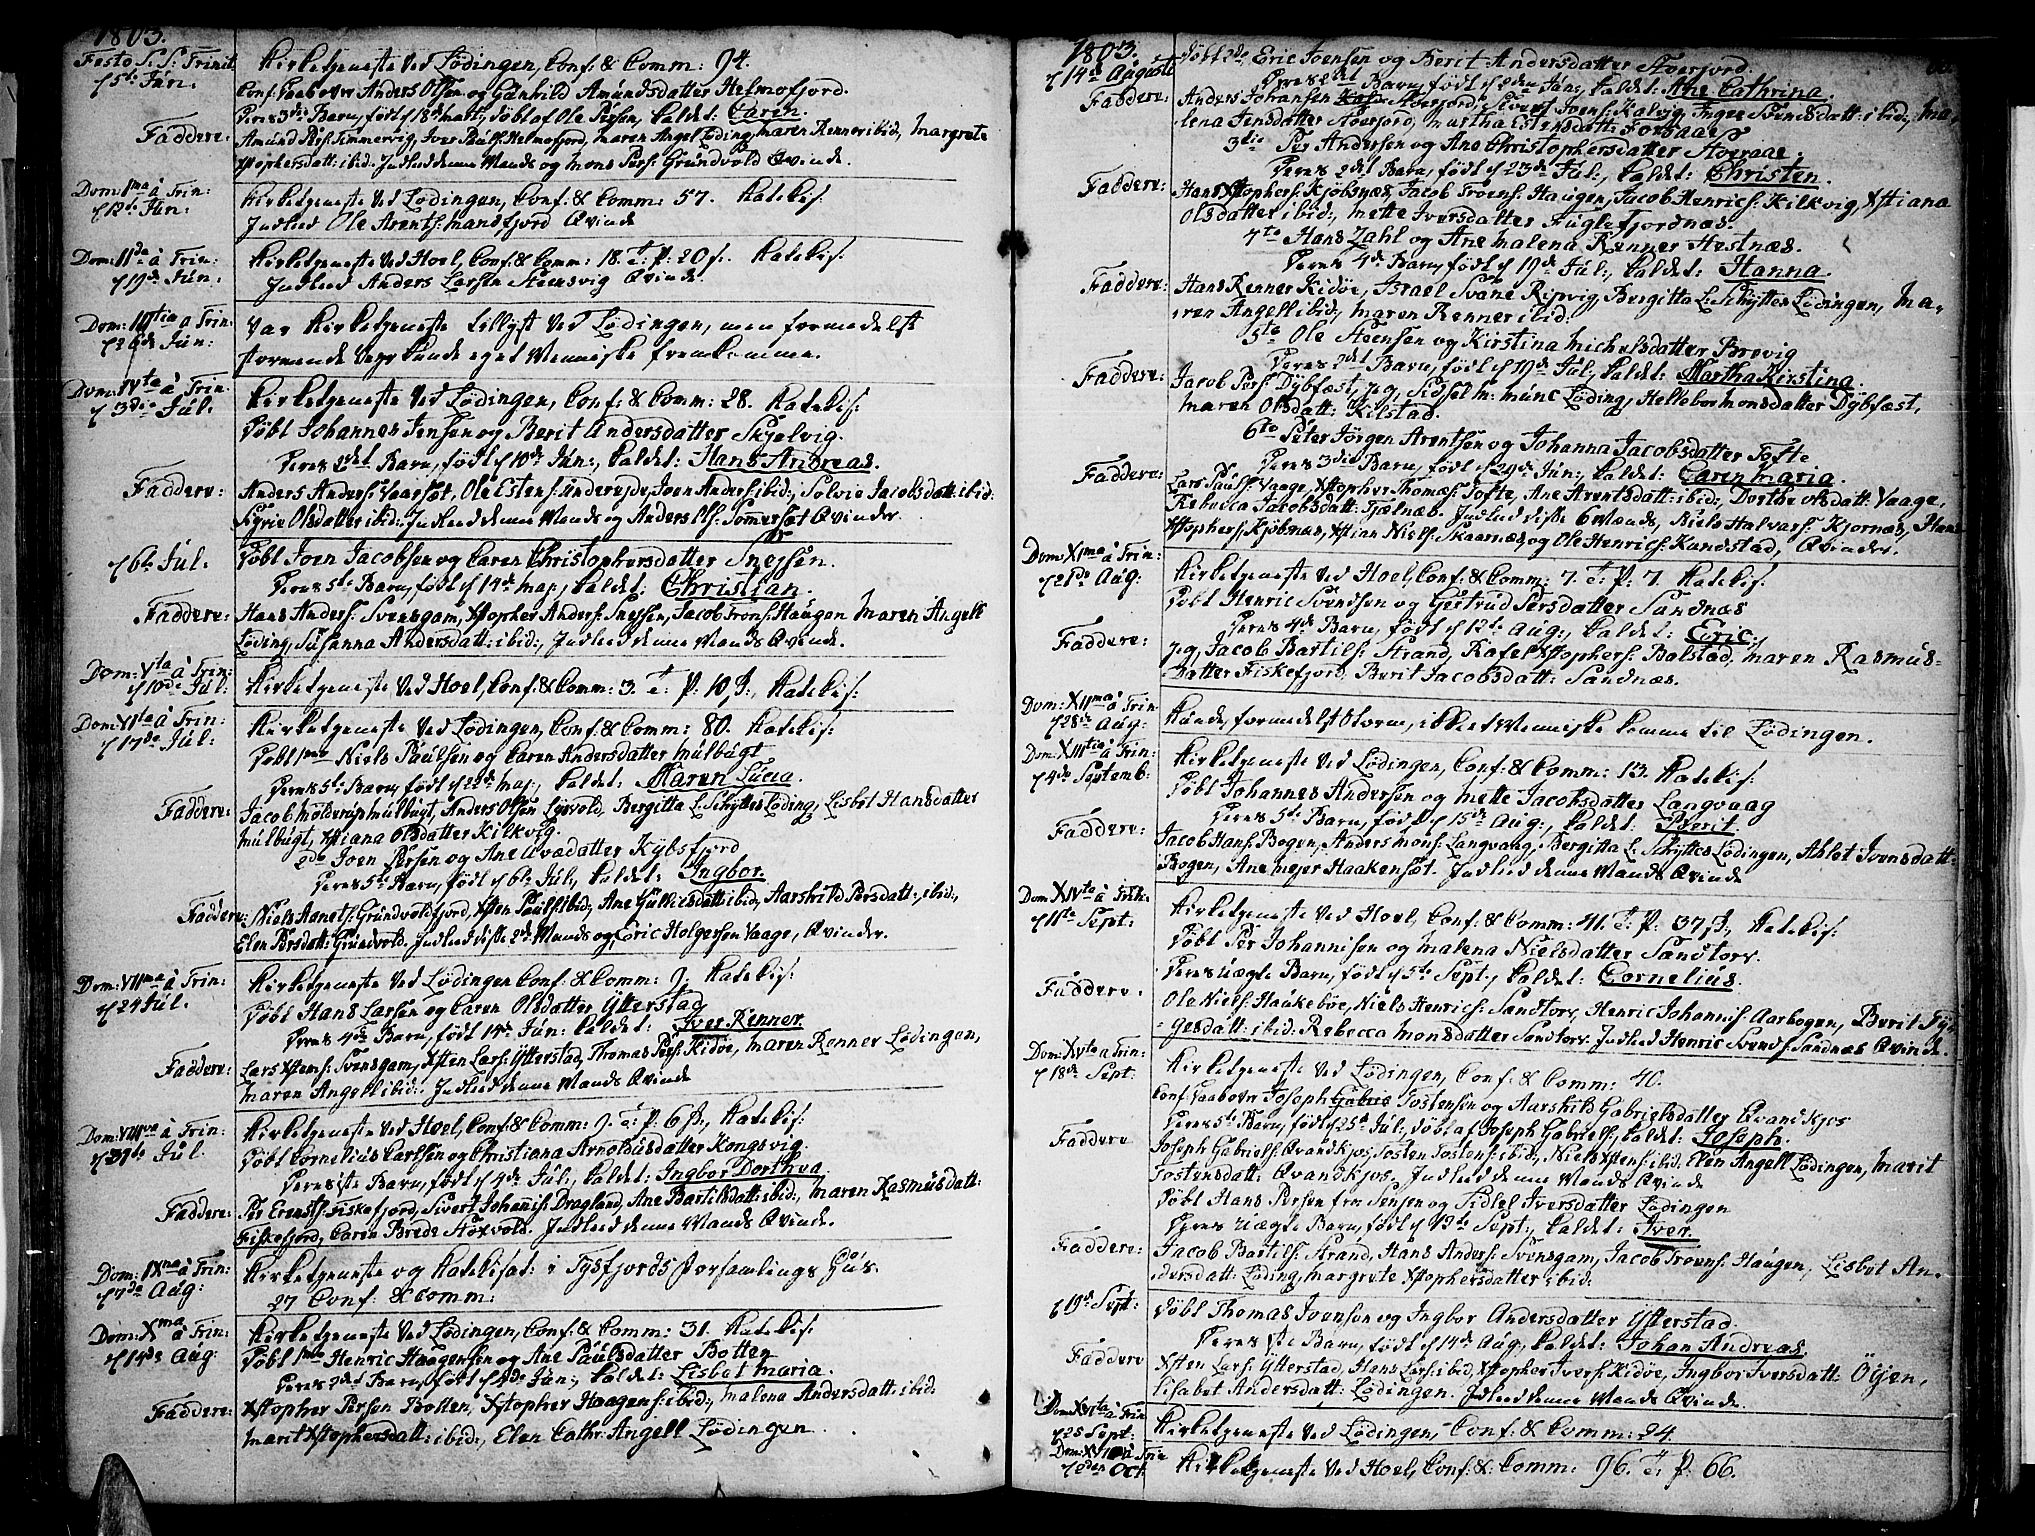 1803.
Festo S. S: Trinit: Kirketjeneste ved Lødingen, Conf: & Comm: 94.
d 5te Jún. Conf: Paaboer Anders Olsen og Gúnhild Amúndsdatter Helmofjord.
Deres 3die Barn, født d 18de Martj, døbt af Ole Persen, kaldet: Caren.
Faddere: Amúnd Pers: Timmervig, Iver Paúls: Helmofjord, Maren Angel Løding, Maren Renner ibid:, Margrete
Xstophersdatt: ibid: Indleed denne Mands og Mons Pers: Grúndvold Qvinde.
Dom: 1ma à Trin: Kirketjeneste ved Lødingen, Conf: & Comm: 57. Katekis:
d 12te Jún: Indleed Ole Arents: Mansfjord Qvinde
Dom: IIda à Trin: Kirketjeneste ved Hoel, Conf: & Comm: 18. T. P: 20 s. Katekis:
d 19de Jún. Indleed Anders Larsen Steensvig Qvinde.
Dom: IIItia à Trin: Var Kirketjeneste tillyst ved Lødingen, men formedelst
d 26de Jún: stormende Vejr kunde ej et Menniske fremkomme.
Dom: IVta à Trin: Kirketjeneste ved Lødingen, Conf: & Comm: 28. Katekis:
d 3die Júl. Døbt Johannes Jensen og Berit Andersdatter Skjelvig.
Deres 2det Barn, født d 10de Jún:, kaldet: Hans Andreas.
Faddere: Anders Anders: Vaarsæt, Ole Estens: Únderejde, Joen Anders: ibid:, Solvie Jacobsdatt: ibid:
Sigrie Olsdatter ibid: Indleed denne Mands og Anders Ols: Sommerset Qvinder.
d 6te Júl. Døbt Joen Jacobsen og Caren Christophersdatter Snejsen.
Deres 5te Barn, født d 14de Maj, kaldet: Christian.
Faddere: Hans Anders: Svensgam, Xstopher Anders: Snejsen, Jacob Trons: Haúgen Maren Angell
Løding, Súsanna Andersdatt: ibid:, Indleed denne Mands Qvinde.
Dom: Vta à Trin:
d 10de Júl: Kirketjeneste ved Hoel, Conf: & Comm: 3. T: P: 10 s:, Katekis:
Dom: VIta à Trin: Kirketjeneste ved Lødingen, Conf: & Comm: 80. Katekis:
d 17de Júl: Døbt 1mo Niels Paúlsen og Caren Andersdatter Múlbúgt
Deres 5te Barn, født d 22de Maj, kaldet: Maren Lucia.
Faddere: Jacob Molderúp Múlbúgt, Anders Olsen Lysvold, Bergitta L. Schyttes Løding, Lisbet Hansdatter
Múlbúgt, Xstiana Olsdatter Kilkvig.
2do Joen Persen og Ane Avedatter Kybsfjord
Deres 5te Barn, født d 6te Júl:, kaldet: Ingbor.
Faddere: Niels Arnets: Grúndvoldfjord, Xsten Paúls: ibid:, Ane Gúllicsdatt: ibid:, Aarshild Persdatt: ibid:,
Elen Persdatt: Grúndvold. Indleed disse 2de Mænds og Eric Holgersen Vaage, Qvinder.
Dom: VIIma à Trin: Kirketjeneste ved Lødingen Conf: & Comm: 9. Katekis:
d 24 Júl. Døbt Hans Larsen og Caren Olsdatter Ytterstad
Deres 4de Barn, født 14de Jún: kaldet: Iver Renner
Faddere: Lars Xstens: Svensgam, Xsten Lars: Ytterstad, Thomas Pers: Kidøe, Maren Renner Lødingen,
Maren Angell ibid: Indleed denne Mands Qvinde
Dom: VIIIva à Trin: Kirketjeneste ved Hoel, Conf: & Comm: 9. T: P. 6 s:, Katekis:
d 31te Júl. Døbt Cornelius Carlsen og Christiana Arnoldusdatter Kongsvig.
Deres 1ste Barn, født d 4de Júl:, kaldet: Ingbor Dorthea.
Faddere: Per Ernsts: Fiskefjord, Sivert Johannis: Dragland, Ane Bartilsdatt: ibid:, Maren Rasmúsdatt:
Fiskefjord, Caren Brede Støxvold. Indleed denne Mands Qvinde.
Dom: IXna à Trin: Kirketjeneste og Katekisat: i Tysfjords Forsamlings Húús.
d 7de Aúg: 27 Conf: & Comm:
Dom: Xma à Trin: Kirketjeneste ved Lødingen, Conf: & Comm: 31. Katekis:
d 14de Aúg: Døbt 1mo Henric Haagensen og Ane Paúlsdatter Botten
Deres 2det Barn, født d 4de Jún:, kaldet: Lisbet Maria.
Faddere: Xstopher Persen Botten, Xstopher Haagens: ibid:, Malena Andersdatt: ibid:
Marit Xstophersdatt: ibid:, Elen Cathr: Angell Lødingen
1803.
d 14de Augusti Døbt 2do Eric Joensen og Berit Andersdatter Averfjord
Deres 2det Barn, født d 2den Jún:, kaldet: Ane Cathrina.
Faddere: Anders Johansen Averfjord, Sivert Joens: Kalvig, Inger Svensdatt: ibid:, Ma,
lena Jensdatter Averfjord, Martha Estensdatt: Forsaae
3tio Per Andersen og Ane Christophersdatter Averaae.
Deres 2det Barn, født d 23de Júl:, kaldet: Christen.
Faddere: Hans Xstophers: Kjøbsnæs, Jacob Troens: Haúgen, Jacob Henrics: Kilkvig, Xstiana
Olsdatter ibid:, Mette Iversdatter Fúglefjordnæs.
4to Hans Zahl og Ane Malena Renner Hestnæs.
Deres 4de Barn, født d 19de Júl:, kaldet: Hanna.
Faddere: Hans Renner Kidøe, Israel Svane Ripvig, Bergitta L. Schyttes Lødingen, Ma,
ren Angell ibid:, Maren Renner ibid:
5to Ole Steensen og Kirstina Michelsdatter Brevig
Deres 2det Barn, født d 17de Júl:, kaldet: Martha Kirstina.
Faddere: Jacob Pers: Dybfæst, jeg, Sidsel M: Múnc Løding, Hellebor Monsdatter Dybfæst,
Maren Olsdatt: Kilstad.
6to Peter Jørgen Arentsen og Johanna Jacobsdatter Tofte
Deres 3die Barn, født d 29de Jún:, kaldet: Caren Maria.
Faddere: Lars Paúls: Vaage, Xstopher Thomæs: Tofte, Ane Arentsdatt: ibid:, Dorthe Olsdatt: Vaage,
Rebecca Jacobsdatt: Fjelnæs. Indleed disse 6 Mænds, Niels Halvars: Kjornæs, Hans
Xstophers: Kjøbsnæs, Xstian Niels: Skaarnæs og Ole Henrics: Kandstad, Qvinder.
Dom: XIma à Trin: Kirketjeneste ved Hoel, Conf: & Comm: 7. T: P: 7. Katekis:
d 21de Aúg: Døbt Henric Svendsen og Gertrúd Persdatter Sandnæs
Deres 4de Barn, født d 12te Aúg:, kaldet: Eric.
Faddere: jeg, Jacob Bartils: Strand, Rafel Xstophers: Balstad, Maren Rasmús-
datter Fiskefjord, Berit Jacobsdatt: Sandnæs.
Dom: XIIma à Trin: 
d 28de Aúg: Kúnde, formedelst Storm, ikke et Menniske komme til Lødingen.
Dom: XIIItia à Trin: Kirketjeneste ved Lødingen, Conf: & Comm: 13. Katekis:
d 4de Septemb: Døbt Johannes Andersen og Mette Jacobsdatter Langvaag
Deres 5te Barn, født d 15de Aúg:, kaldet: Berit.
Faddere: Jacob Hans: Bogen, Anders Mons: Langvaag, Bergitta L. Schyttes Lødingen, Ahlet Ivensdatt:
Bogen, Ane Mejer Haakenset. Indleed denne Mands Qvinde
Dom: XIVta à Trin: Kirketjeneste ved Hoel, Conf: & Comm: 41. T: P: 37 s:, Katekis:
d 11te Sept: Døbt Per Johannisen og Malena Nielsdatter Sandtorv.
Deres Uægte Barn, født d 5te Sept:, kaldet: Cornelius.
Faddere. Ole Niels: Haúkebøe, Niels Henrics: Sandtorv, Henric Johannis: Aarbogen, Berit Jør-
gesdatt: ibid: Rebecca Monsdatter Sandtorv. Indleed Henric Svends: Sandnæs Qvinde.
Dom: XVta à Trin: Kirketjeneste ved Lødingen, Conf: & Comm: 40.
d 18de Sept. Conf: Paaboer Joseph Gabrie Tostensen og Aarshild Gabrielsdatter Qvandkjos
Deres 5te Barn, født d 25de Júl:, døbt af Joseph Gabriels:, kaldet: Joseph.
Faddere Joseph Gabriels: Qvandkjos, Tosten Tostens: ibid:, Niels Xstens: ibid: Elen Angell Lødingen, Marit
Tostensdatt: Qvandkjos, Indleed denne Mands Qvinde
Døbt Hans Persen fra Senjen og Sidsel Iversdatter Lødingen
Deres Uægte Barn, født d 13te Sept:, kaldet: Iver.
Faddere: Jacob Bartils: Strand, Hans Anders: Svensgam, Jacob Troens: Haúgen, Lisbet An,
dersdatt: Løding, Margrete Xstophersdatter ibid:
d 19de Sept: Døbt Thomas Ivensen og Ingbor Andersdatter Ytterstad.
Deres 1ste Barn, født d 14de Aúg:, kaldet: Johan Andreas.
Faddere Xsten Lars: Ytterstad, Hans Lars: ibid, Xstopher Ivers: Kidøe, Ingbor Iversdatt: Öyjen,
Lisabet Andersdatt: Lødingen. Indleed denne Mands Qvinde.
Dom: XVIta à Trin
d 25 Sept: Kirketjeneste ved Lødingen, Conf: & Comm: 24.
Dom: XVII à Trin
d 2den Oct: Kirketjeneste ved Hoel, Conf: & Comm: 96. T: P. 66.